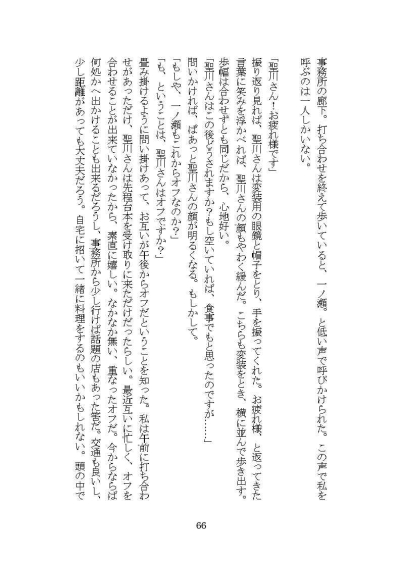 事務所の廊下。打ち合わせを終えて歩いていると、一ノ瀬。と低い声で呼びかけられた。この声で私を
呼ぶのは一人しかいない。
「聖川さん!お疲れ様です」
振り返り見れば、聖川さんは変装用の眼鏡と帽子をとり、手を振ってくれた。お疲れ様、と返ってきた
言葉に笑みを浮かべれば、聖川さんの顔もやわく緩んだ。こちらも変装をとき、横に並んで歩き出す。
歩幅は合わせずとも同じだから、心地好い。
「聖川さんはこの後どうされますか?もし空いていれば、食事でもと思ったのですが……」
問いかければ、ぱあっと聖川さんの顔が明るくなる。もしかして。
「もしや、一ノ瀬もこれからオフなのか?」
「も、ということは、聖川さんはオフですか?」
畳み掛けるように問い掛けあって、お互いが午後からオフだということを知った。私は午前に打ち合わ
せがあっただけ、聖川さんは先程台本を受け取りに来ただけだったらしい。最近互いに忙しく、オフを
合わせることが出来ていなかったから、素直に嬉しい。なかなか無い、重なったオフだ。今からならば
何処かへ出かけることも出来るだろうし、事務所から少し行けば話題の店もあった筈だ。交通も良いし、
少し距離があっても大丈夫だろう。自宅に招いて一緒に料理をするのもいいかもしれない。頭の中で
66